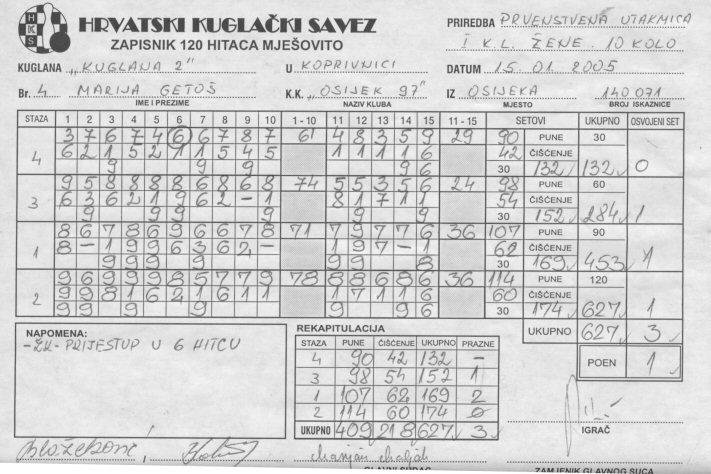 HRVATSKI KUGLAČKI SAVEZ
ZAPISNIK 120 HITACA MJEŠOVITO
PRIREDBA PRVENSTVENA UTAKMICA
I K.L. ŽENE. 10 KOLO
KUGLANA "KUGLANA 2" U KOPRIVNICI DATUM 15. 01. 2005
Br. 4 MARIJA GETOŠ K.K. "OSIJEK 97" IZ OSIJEKA 140071
IME I PREZIME NAZIV KLUBA MJESTO BROJ ISKAZNICE
STAZA 1 2 3 4 5 6 7 8 9 10 1 - 10 11 12 13 14 15 11 - 15 SETOVI UKUPNO OSVOJENI SET
3 7 6 7 4 6 6 7 8 7 61 4 8 3 5 9 29 90 PUNE 30
4 6 2 1 5 2 1 1 5 4 5 1 1 1 1 6 42 ČIŠĆENJE
9 9 9 9 6 30 132 132 0
9 5 8 8 8 8 6 8 6 8 74 5 5 3 5 6 24 98 PUNE 60
3 6 3 6 2 1 9 6 2 - 1 8 1 7 1 1 54 ČIŠĆENJE
9 9 9 9 9 9 30 152 284 1
8 6 7 8 6 9 6 6 7 8 71 7 9 7 7 6 36 107 PUNE 90
1 8 - 1 9 9 6 3 6 2 - 1 9 7 - 1 62 ČIŠĆENJE
9 9 9 9 9 9 8 30 169 453 1
9 6 9 9 9 8 5 7 7 9 78 8 8 6 8 6 36 114 PUNE 120
2 9 9 8 1 6 2 1 6 1 1 1 7 1 1 6 60 ČIŠĆENJE
9 9 9 9 9 6 30 174 627 1
UKUPNO 627 3
POEN 1
NAPOMENA:
- ŽK - PRIJESTUP U 6 HITCU
REKAPITULACIJA
STAZA PUNE ČIŠĆENJE UKUPNO PRAZNE
4 90 42 132 -
3 98 54 152 1
1 107 62 169 2
2 114 60 174 0
UKUPNO 409 218 627 3
IGRAČ
GLAVNI SUDAC ZAMJENIK GLAVNOG SUCA